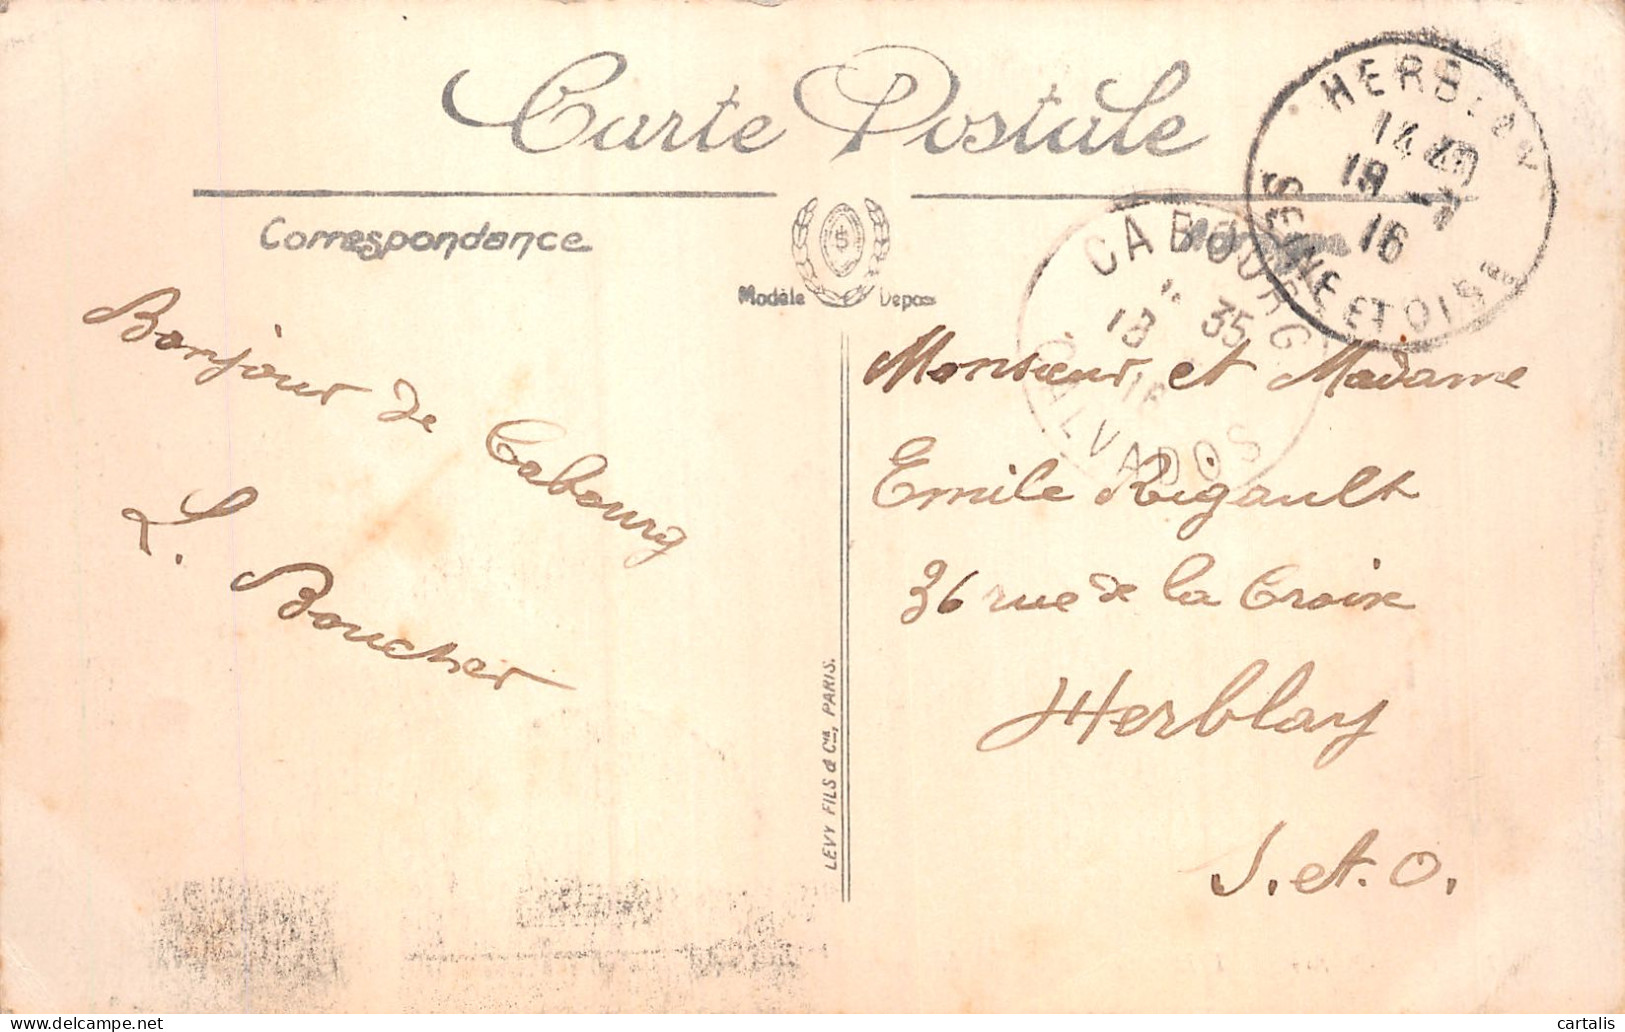 Carte Postale
Correspondance
Modèle Déposé
HERBLAY
14
18 -7
16
SEINE ET OISE
CABOURG
35
18
16
CALVADOS
Bonjour de Cabourg
L. Boucher
Monsieur et Madame
Emile Rigault
36 rue de la Croix
Herblay
S. et. O.
LEVY FILS & Cie, PARIS.
delcampe.net
cartalis